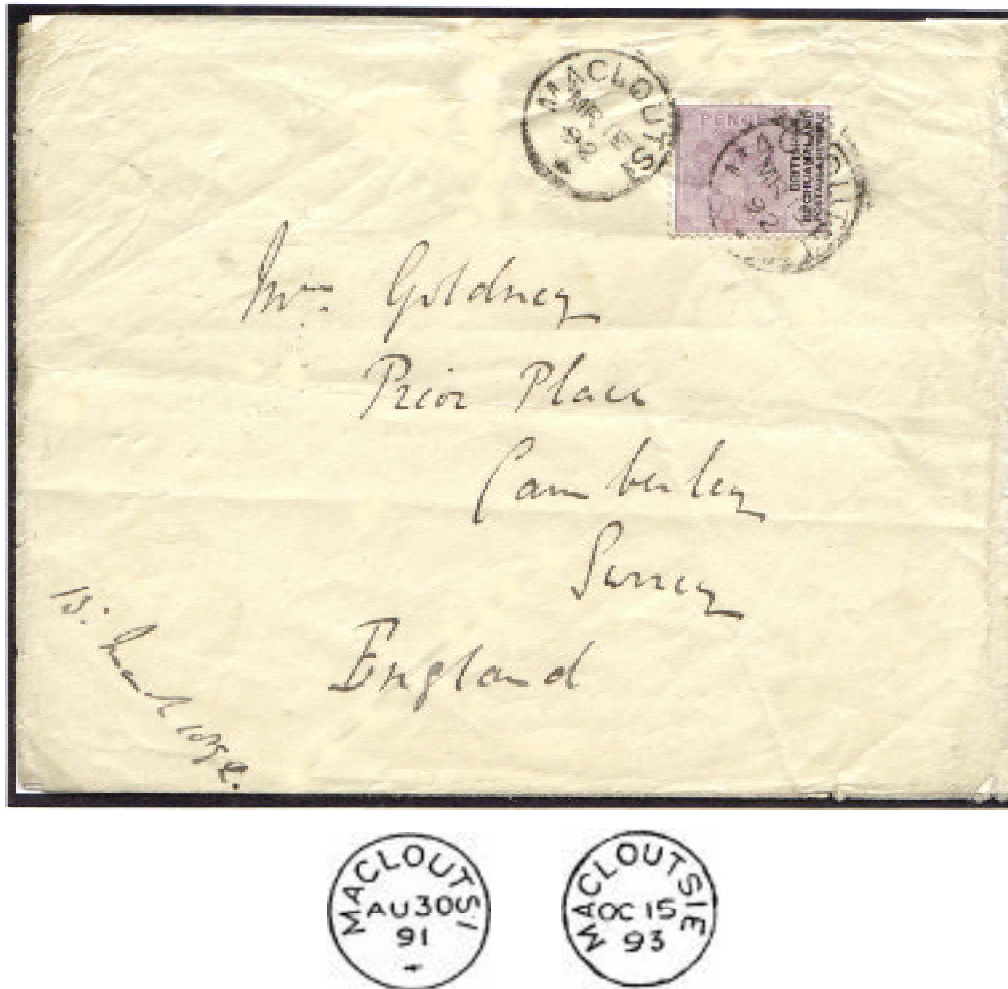 MACLOUTSI
MR
92
PENCE
BRITISH
BECHUANALAND
MR
92
Mrs Goldney
Prior Place
Camberley
Surrey
England
15. March 1892.
MACLOUTSI
AU 30
91
MACLOUTSIE
OC 15
93